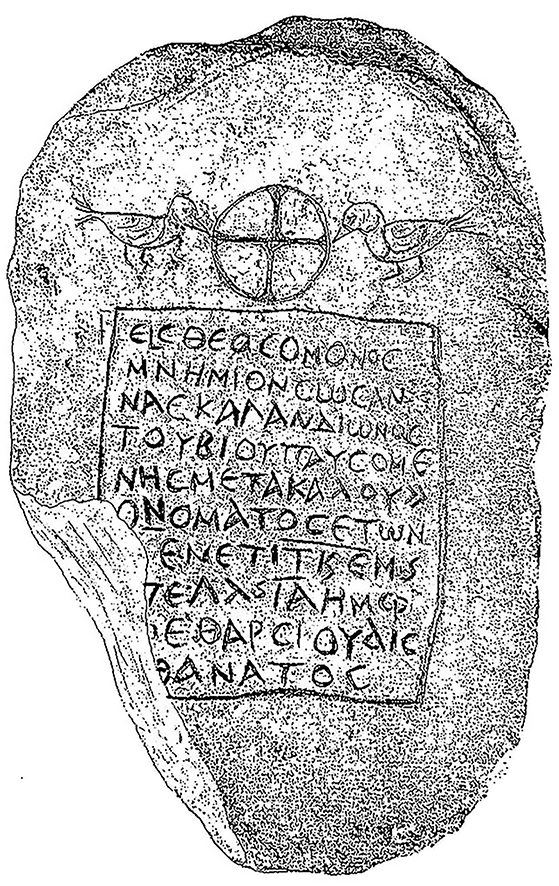 ΕΙϹΘΕΩϹΟΜΟΝΟϹ
ΜΝΗΜΙΟΝϹΩϹΑΝ
ΝΑϹΚΑΛΑΝΔΙΩΝΟϹ
ΤΟΥΒΙΟΥΠΑΥϹΟΜΕ
ΝΗϹΜΕΤΑΚΑΛΟΥ
ΟΝΟΜΑΤΟϹΕΤΩΝ
ΕΝΕΤΙΤΚΕΜ
ΠΕΛΑ ΓΑΗΜ
ΕΘΑΡϹΙΟΥΔΙϹ
ΘΑΝΑΤΟϹ